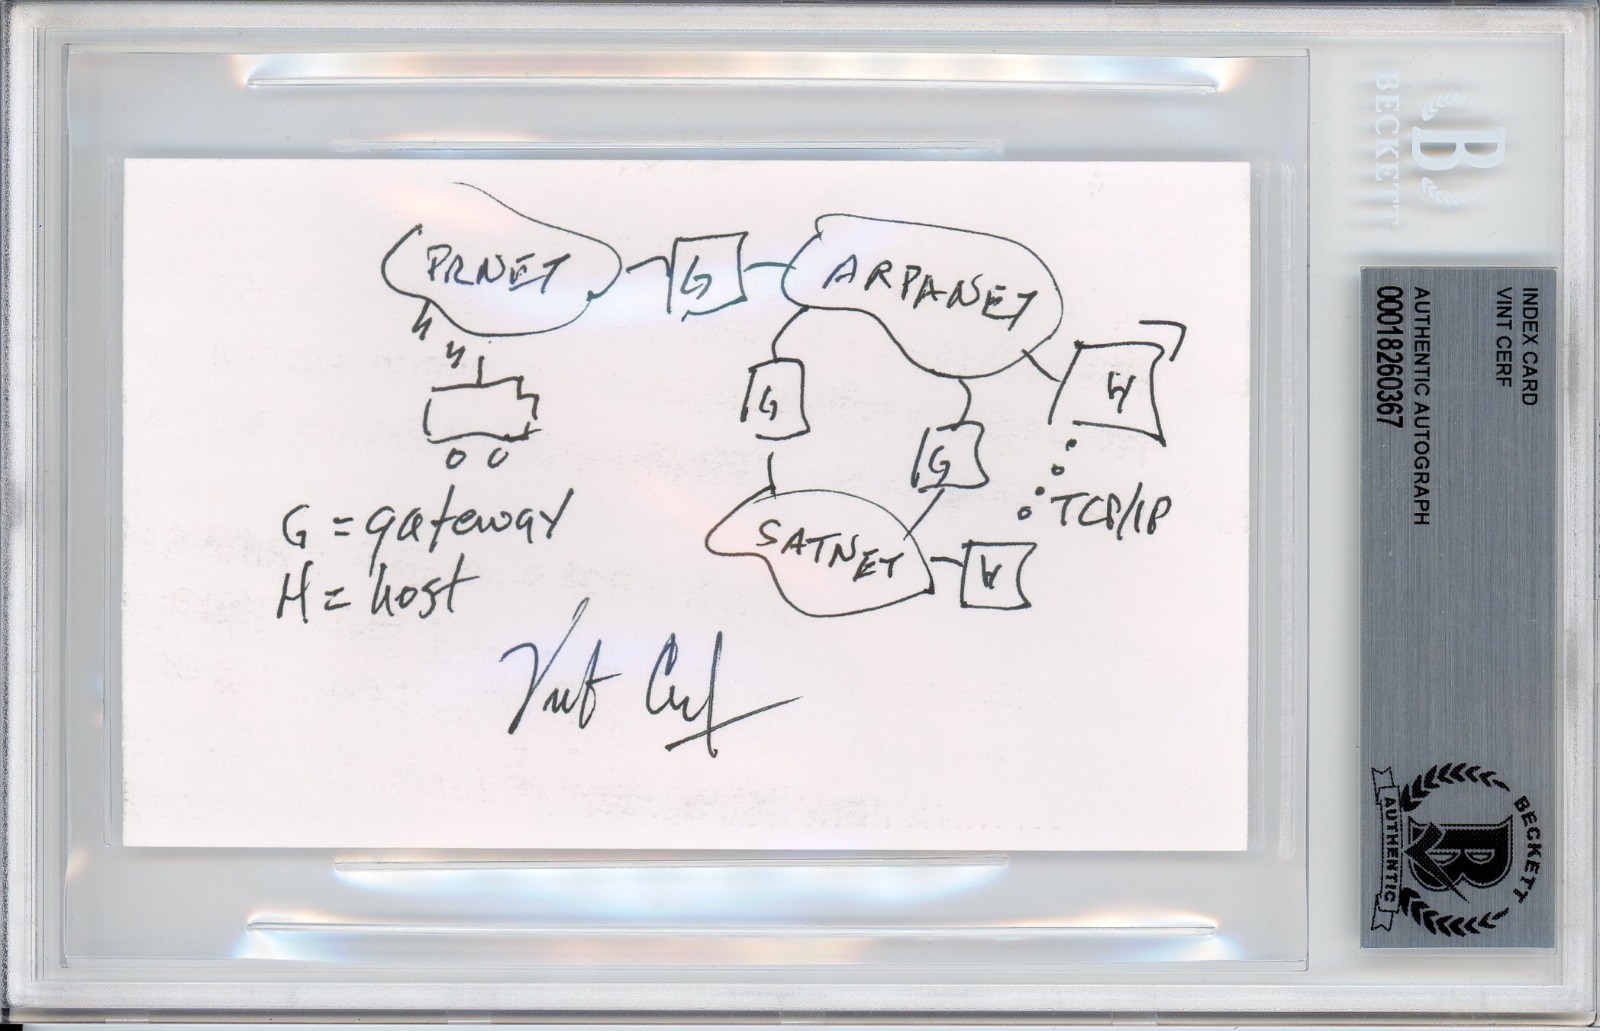 PRNET
G
ARPANET
G
H
G
TCP/IP
SATNET
H
G = gateway
H = host
Vint Cerf
B
BECKETT
INDEX CARD
VINT CERF
AUTHENTIC AUTOGRAPH
00018260367
BECKETT
B
AUTHENTIC